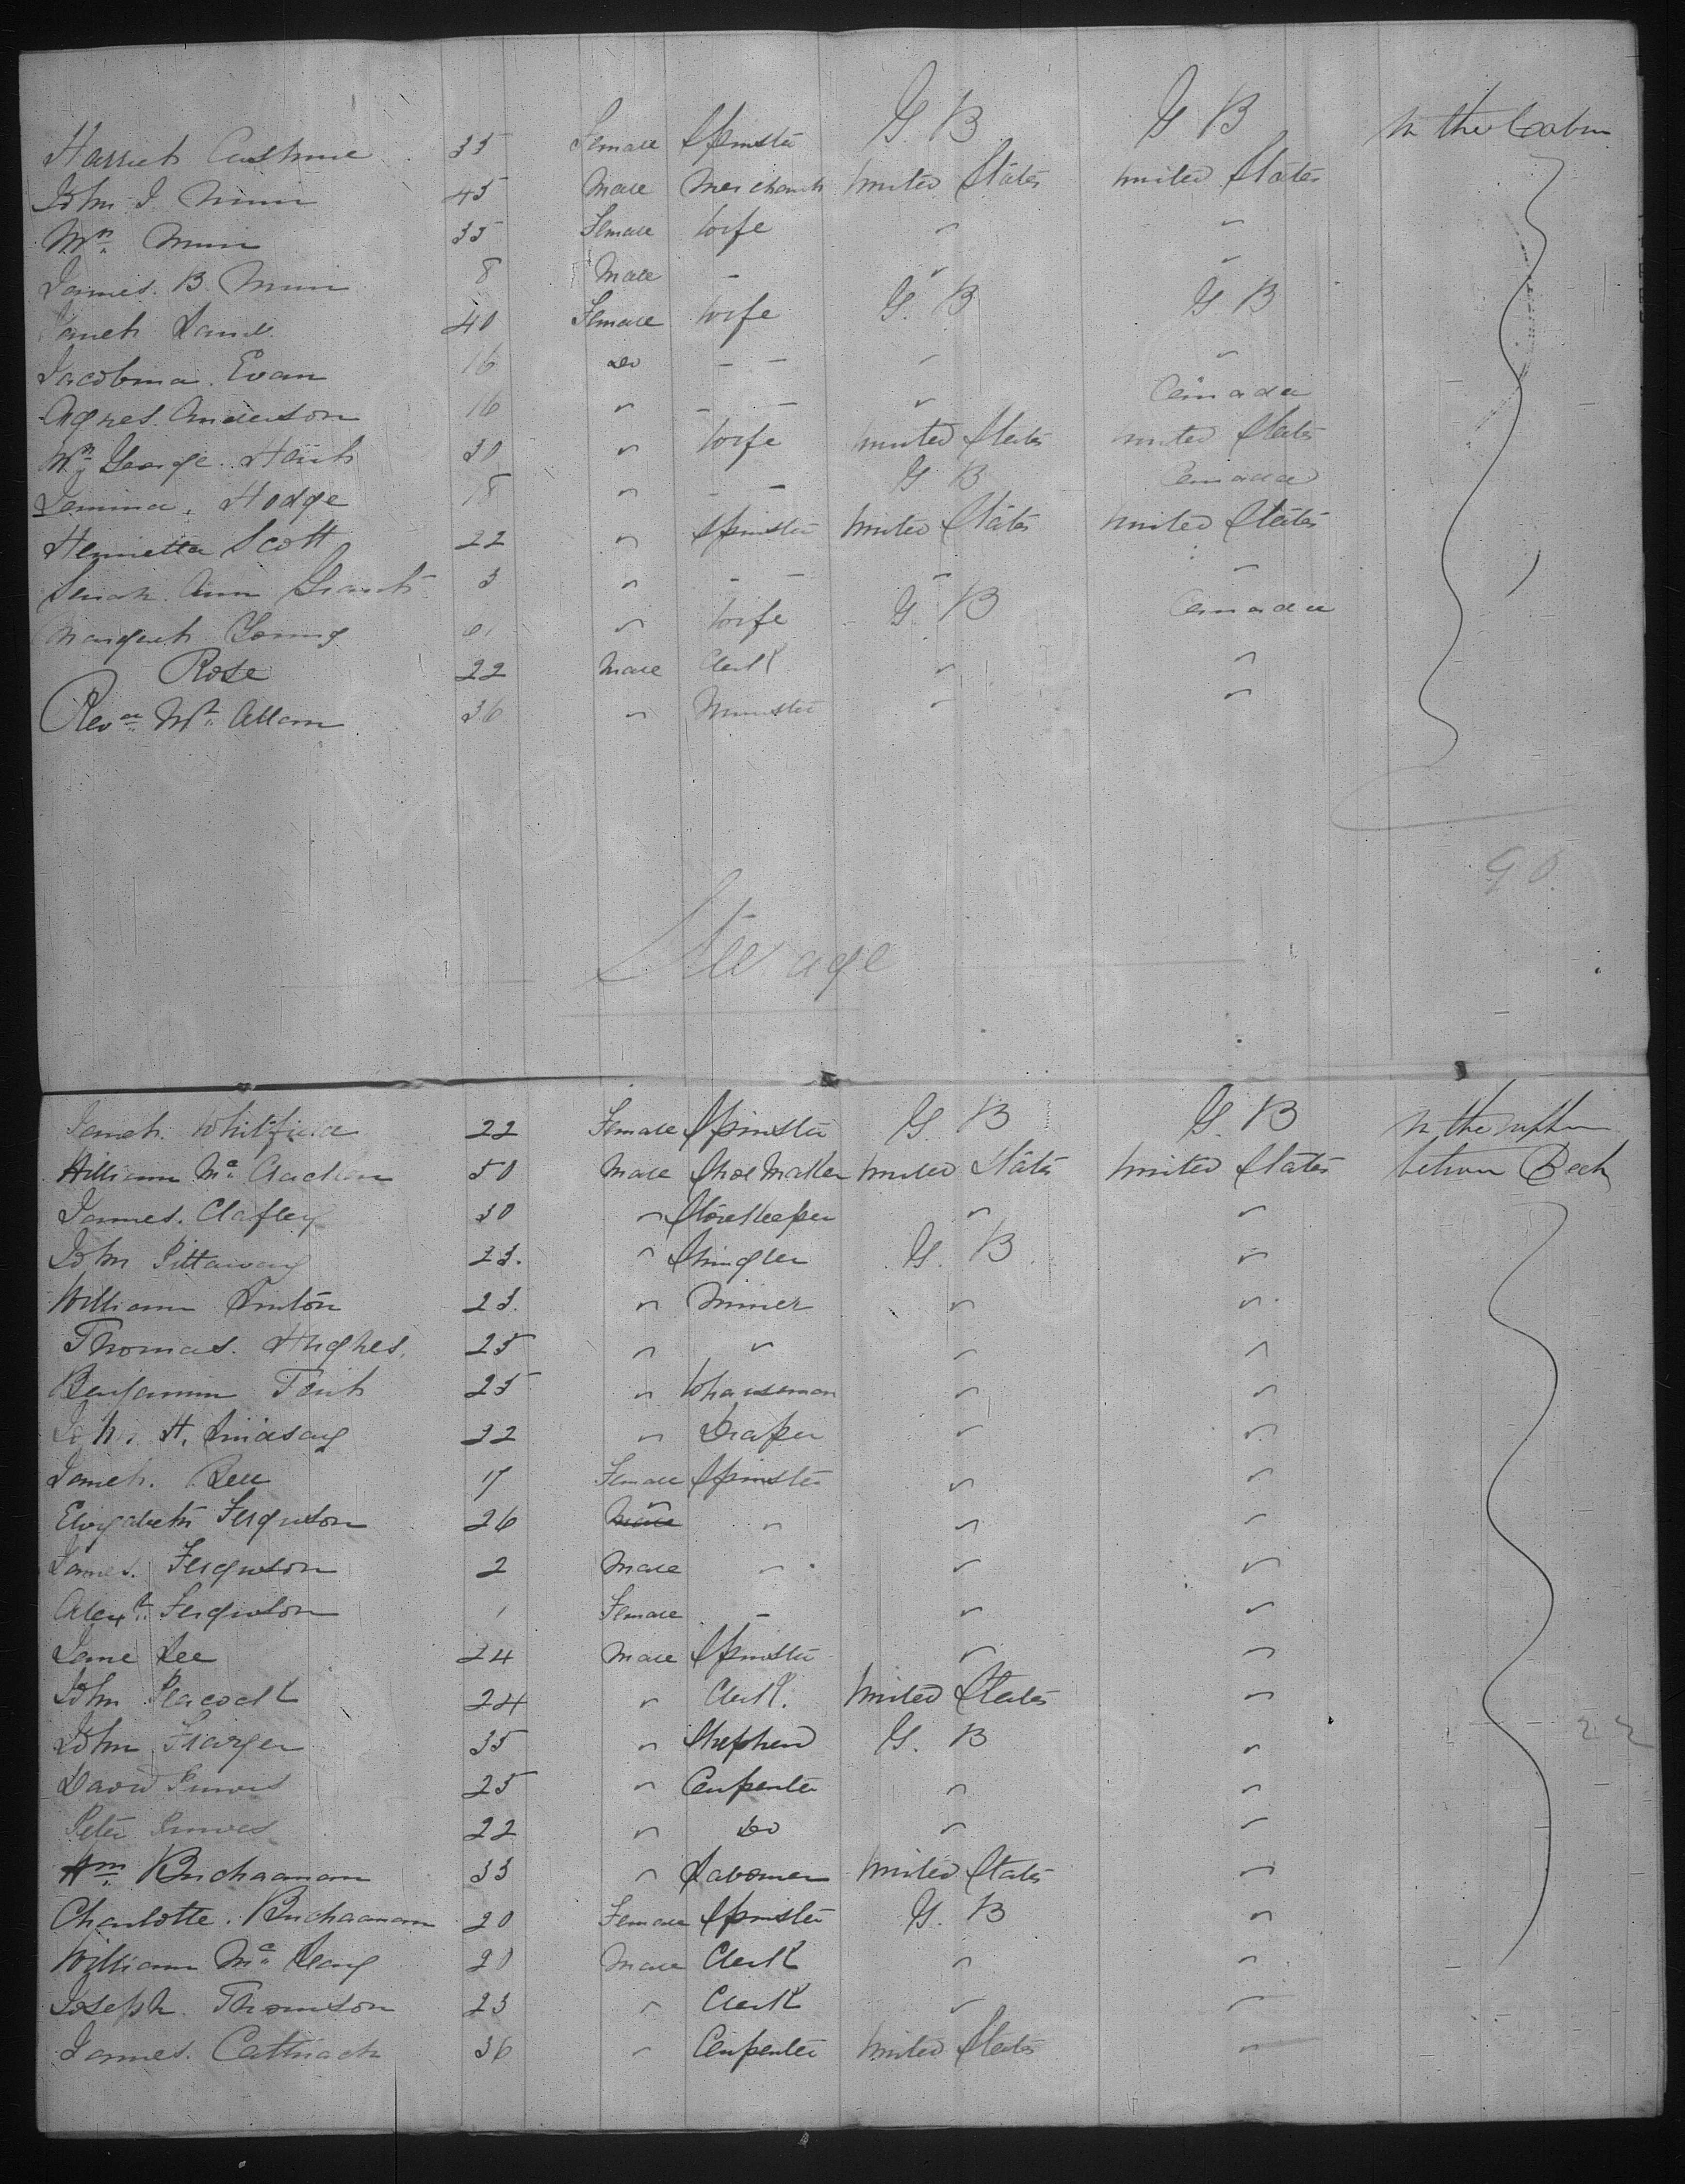 Harriet 35 Female Spinster G. B G B In the Cabin
John J. 45 Male Merchant United States United States
Mrs 35 Female Wife " "
James. B. 8 Male - " "
Janet 40 Female Wife G. B G B
Jacobina. Evan 16 Do - - " "
Agnes. Anderson 16 " - - " Canada
Mrs George 30 " Wife United States United States
Jemima. Hodge 18 " - - G B Canada
Henrietta Scott 22 " Spinster United States United States
Sarah Ann Grant 3 " - - " "
Margaret Young " Wife G. B Canada
Rose 22 Male Clerk " "
Revd Mr. Allan 36 " Minister " "
90.
Steerage
Janet. Whitfield 22 Female Spinster G. B G. B In the
William Mc 50 Male Shoe Maker United States United States between Deck
James. Clafley 30 " Storekeeper " "
John Pittaway 23. " Shingler G. B "
William Linton 23. " Miner " "
Thomas. Hughes. 25 " " " "
Benjamin 25 " " "
John H. Lindsay 32 " Draper " "
Janet. 17 Female Spinster " "
Elizabeth Ferguson 26 " " " "
James. Ferguson 2 Male " " "
Alexr. Ferguson 1 Female - " "
Jane Lee 24 Male Spinster " "
John Peacock 24 " Clerk. United States "
John Frazer 35 " Shepherd G. B "
David Purves 25 " Carpenter " "
Peter Purves 22 " Do " "
Wm. Buchaanan 33 " Labourer United States "
Charlotte. Buchaanan 20 Female Spinster G. B "
William Mc. 20 Male Clerk " "
Joseph. Thomson 23 " Clerk " "
James. Cattnach 36 " Carpenter United States "
22